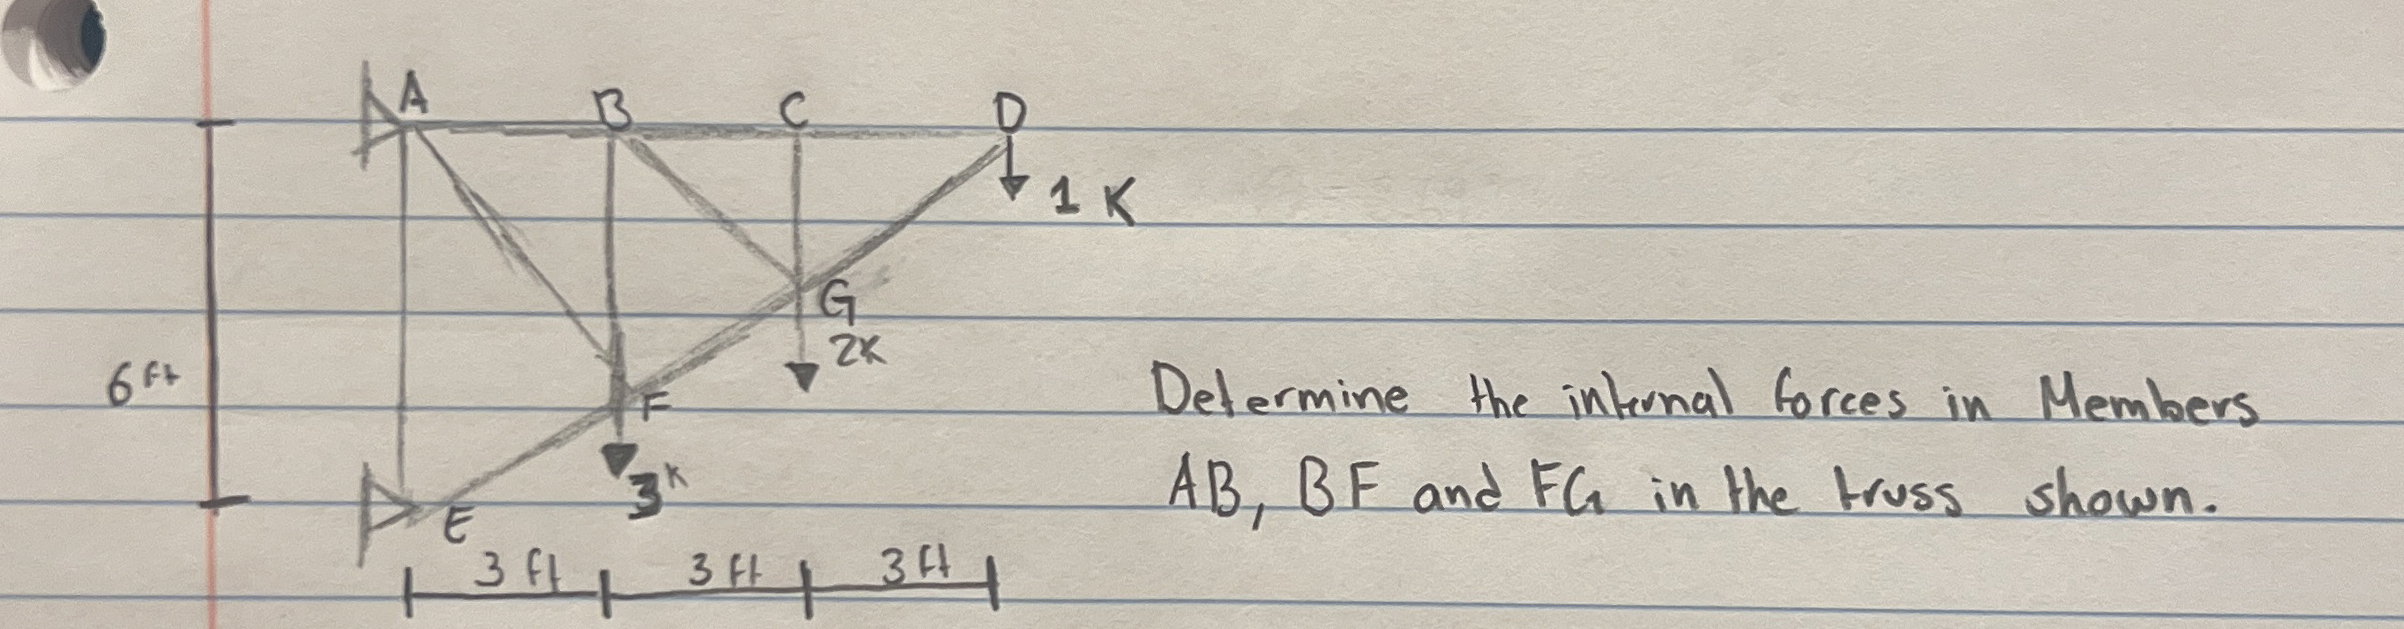 A B C D
1 K
G
2K
6 ft
F
3K
E
3 ft 3 ft 3 ft
Determine the internal forces in Members
AB, BF and FG in the truss shown.